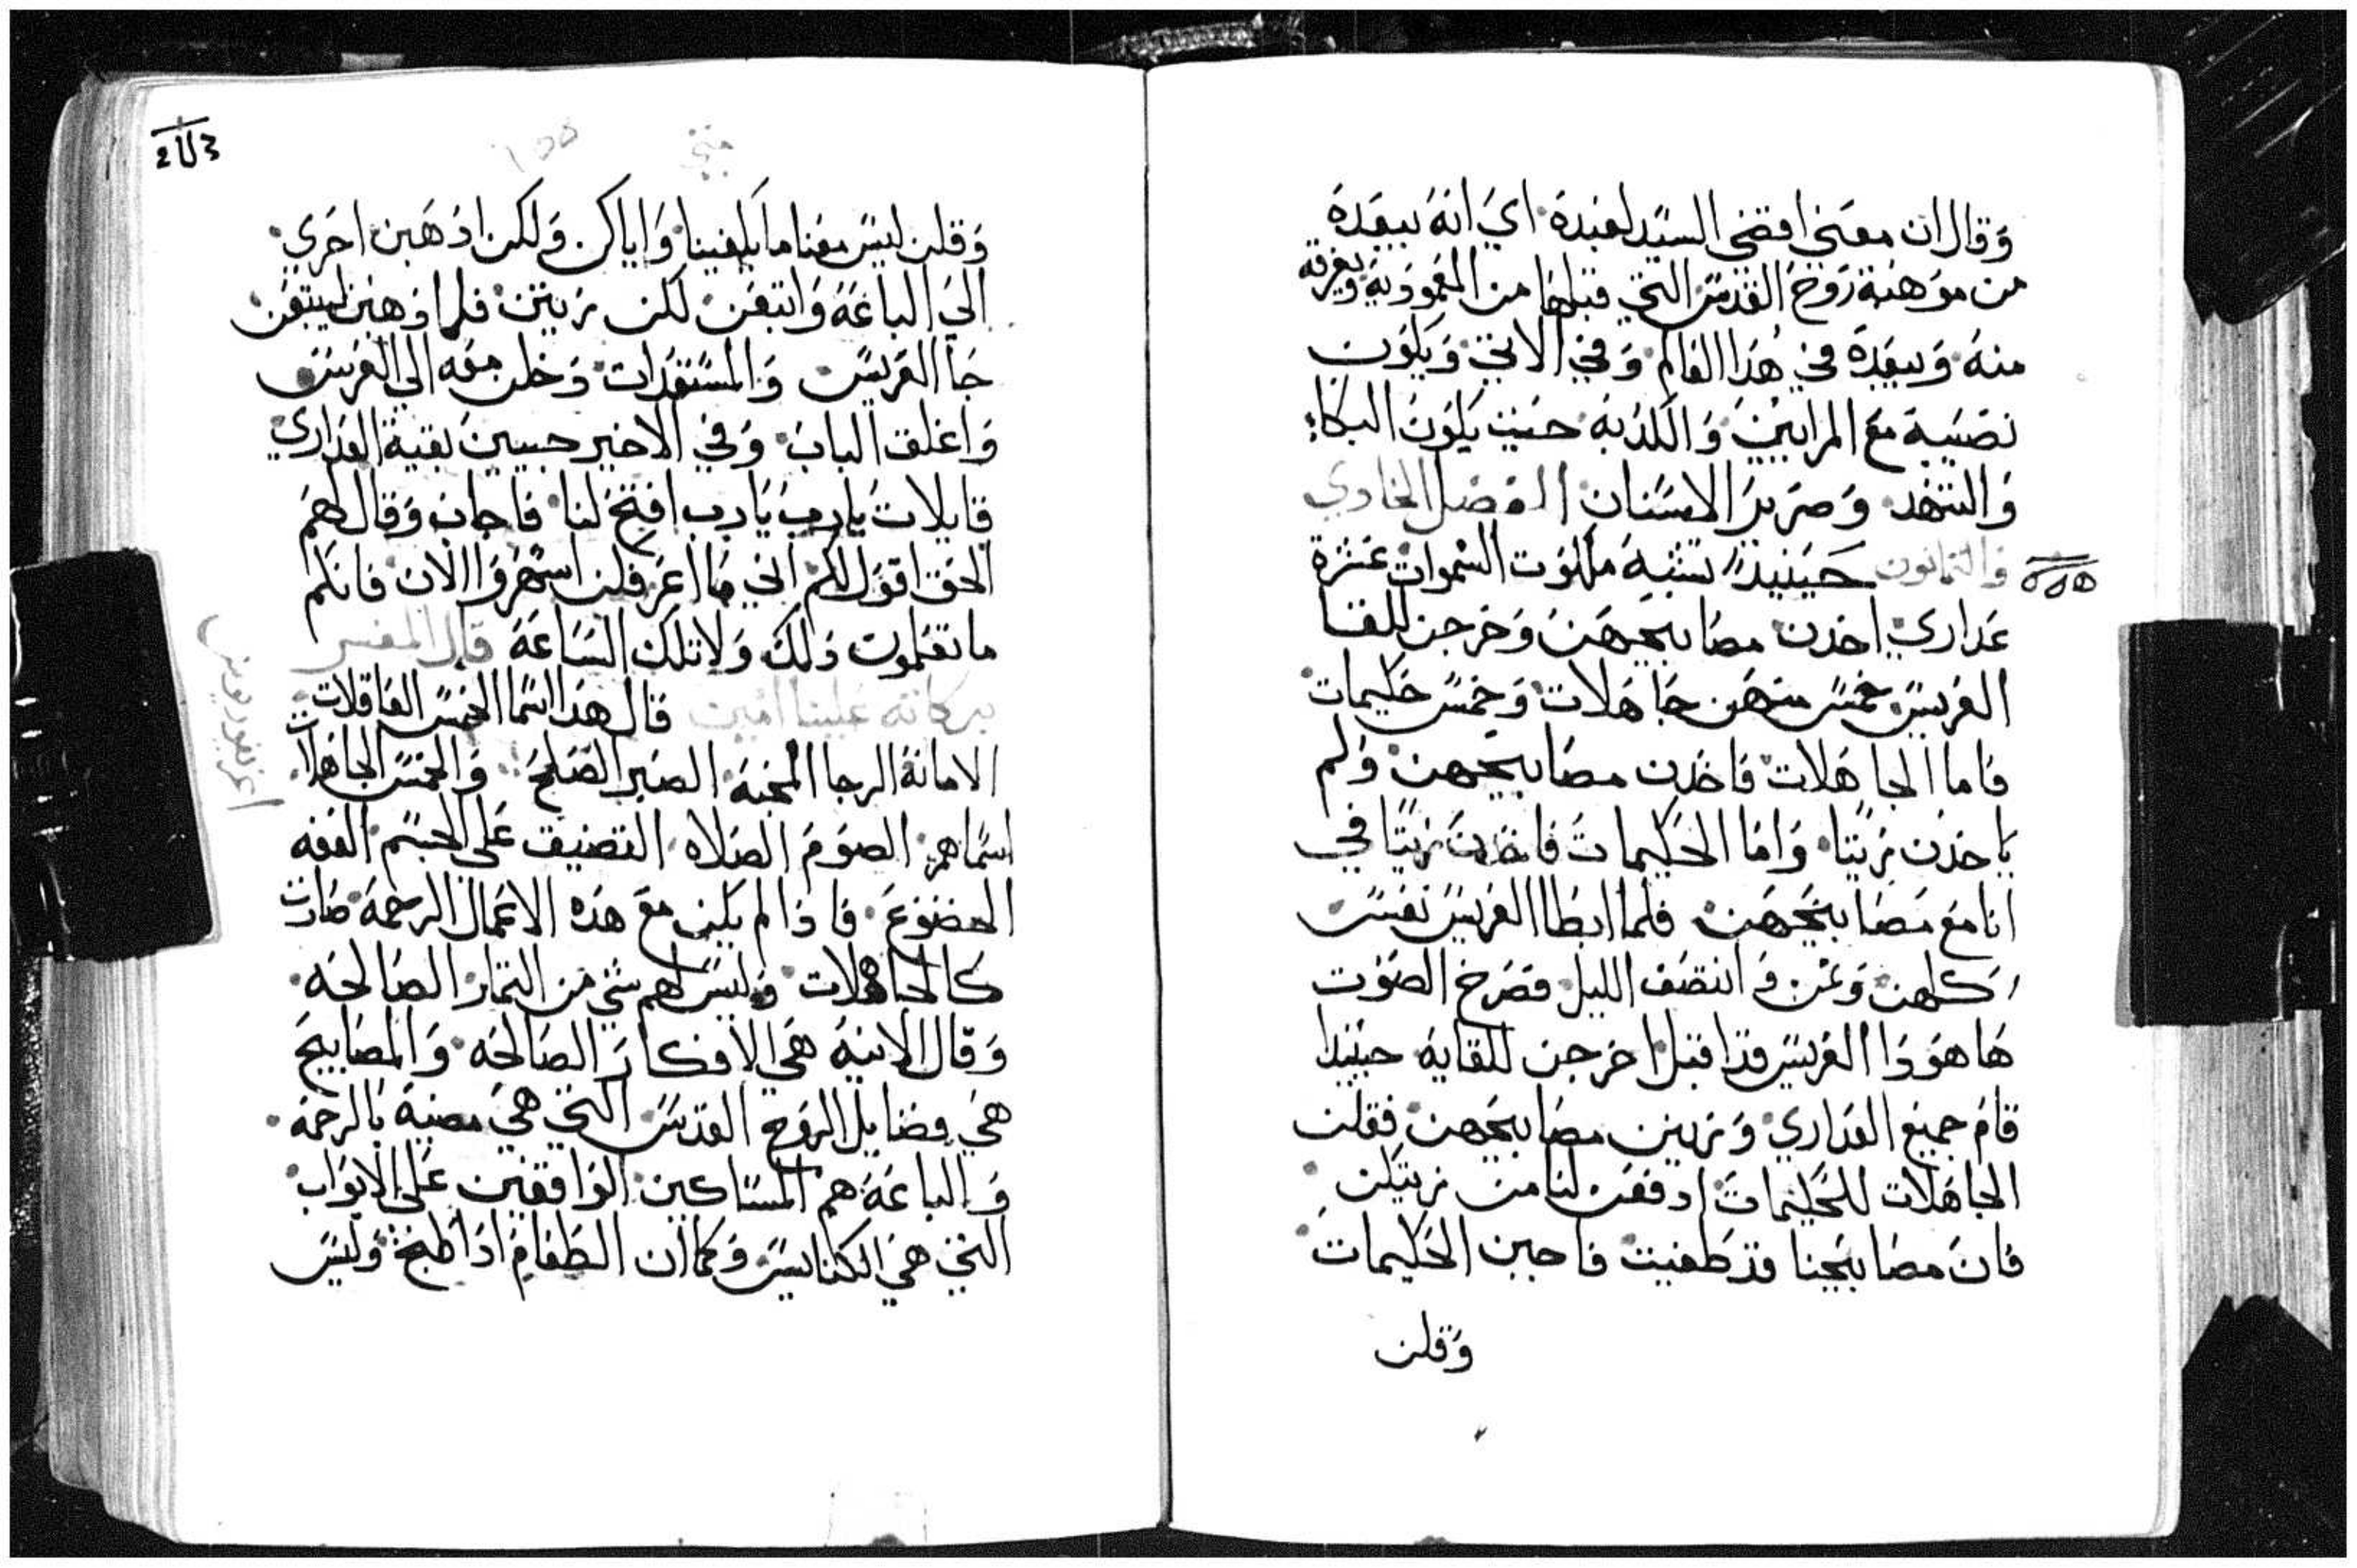 وقال ان معني افتضي السيد لعبده اي انه يبعده
من موهبة روح القدس التي قبلها من المعمودية ويفرقه
منه ويبعده في هذا العالم وفي الاتي ويكون
نصيبه مع المرايين والكدبه حيت يكون البكاء
والتنهد وصرير الاسنان الفصل الحادي
والتمانون حينيد تشبه ملكوت السموات عشرة
عداري اخدن مصابيحهن وخرجن للقا
العريس خمس منهن جاهلات وخمس حكيمات
فاما الجاهلات فاخدن مصابيحهن ولم
ياخدن زيتا واما الحكيمات فاخدن زيتا في
انا مع مصابيحهن فلما ابطا العريس نعسن
كلهن ونمن وانتصف الليل فصرخ الصوت
هاهودا العريس قد اقبل اخرجن للقايه حينيدا
قام جميع العداري وزين مصابيحهن فقلن
الجاهلات للحكيمات ادفعن لنا من زيتكن
فان مصابيحنا قد طفيت فاجبن الحكيمات
وقلن
متي
وقلن ليس معنا ما يكفينا واياكن ولكن ادهبن احري
الي الباعة وابتعن لكن زيتن فلما دهبن ليبتعن
جا العريس والمستعدات دخلن معه الي العرس
واغلق الباب وفي الاخير جيين بقية العداري
قايلات يارب يارب افتح لنا فاجاب وقال لهم
الحق اقول لكم اني ما اعرفكن اسهروا الان فانكم
ما تعلمون دلك ولا تلك الساعة قال المفسر
بركاته علينا امين قال هدا اسما الخمس العاقلات
الامانة الرجا المحبة الصبر الصلح والخمس الجاهلات
اسماهم الصوم الصلاه التضيق علي الجسم العفه
الخضوع فادا لم يكن مع هده الاعمال الرحمة صارت
كالجاهلات وليس لهم شي من التمار الصالحه
وقال الانيه هي الافكار الصالحه والمصابيح
هي فضايل الروح القدس التي هي مضية بالرحمة
والباعة هم المساكين الواقفين علي الابواب
التي هي الكنايس وكما ان الطعام ادا طبخ وليس